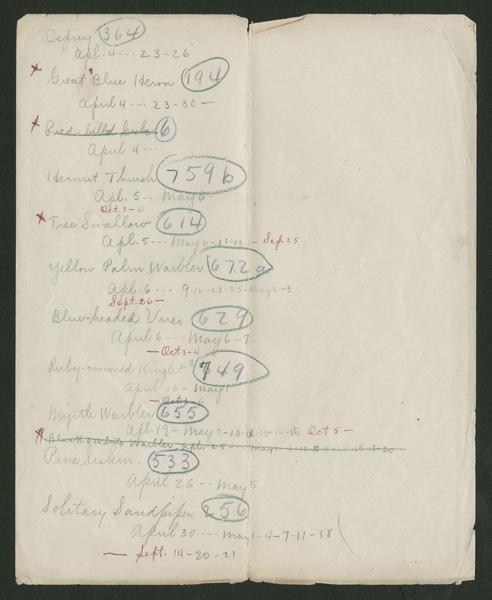 Osprey 364
Apl. 4 --- 23-26
x Great Blue Heron 194
April 4 --- 23-30 -
x Pied-billed Grebe 6
April 4 ---
Hermit Thrush 759b
Apl. 5 --- May 6 -
Oct. 3-4
x Tree Swallow 614
Apl. 5 --- May 6-11-12 - Sep. 25
Yellow Palm Warbler 672a
Apl. 6 --- 9-16-23-25-May 2-3
Sept. 26 -
Blue-headed Vireo 629
April 6 --- May 6-7
- Oct. 3-4
Ruby-crowned Kinglet 749
April 10 - May 1
- Oct. 3-6
Myrtle Warbler 655
Apl. 19 - May 2-10-12-13-14-15 Oct 5 -
x Black & white Warbler Apl. 25 - May
Pine Siskin - 533
April 26 -- May 5
Solitary Sandpiper 256
April 30 --- May 1-4-7-11-18
- Sept. 14-20-21